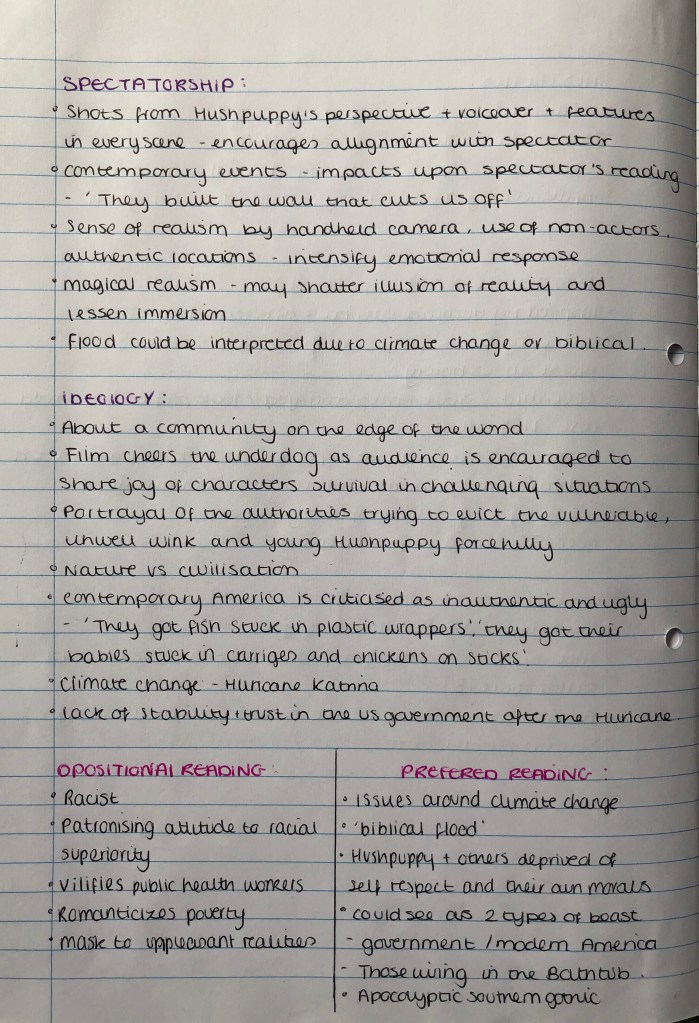 SPECTATORSHIP:
• Shots from Hushpuppy's perspective + voiceover + features
in every scene - encourages allignment with spectator
• contemporary events - impacts upon spectator's reading
- 'They built the wall that cuts us off'
• Sense of realism by handheld camera, use of non-actors,
authentic locations - intensify emotional response
• magical realism - may shatter illusion of reality and
lessen immersion
• Flood could be interpreted due to climate change or biblical.
IDEOLOGY:
• About a community on the edge of the world
• Film cheers the underdog as audience is encouraged to
share joy of characters survival in challenging situations
• Portrayal of the authorities trying to evict the vulnerable,
unwell wink and young Hushpuppy forcefully
• Nature vs civilisation
• contemporary America is criticised as inauthentic and ugly
- 'They got fish stuck in plastic wrappers', 'they got their
babies stuck in carriges and chickens on sticks'.
• Climate change - Huricane Katrina
• lack of stability + trust in the US government after the Huricane.
OPOSITIONAL READING:
• Racist
• Patronising attitude to racial
superiority
• Vilifies public health workers
• Romanticizes poverty
• mask to unpleasant realities
PREFERED READING:
• Issues around climate change
• 'biblical flood'
• Hushpuppy + others deprived of
self respect and their own morals
• could see as 2 types of beast
- government / modern America
- Those living in the Bathtub.
• Apocalyptic southern gothic